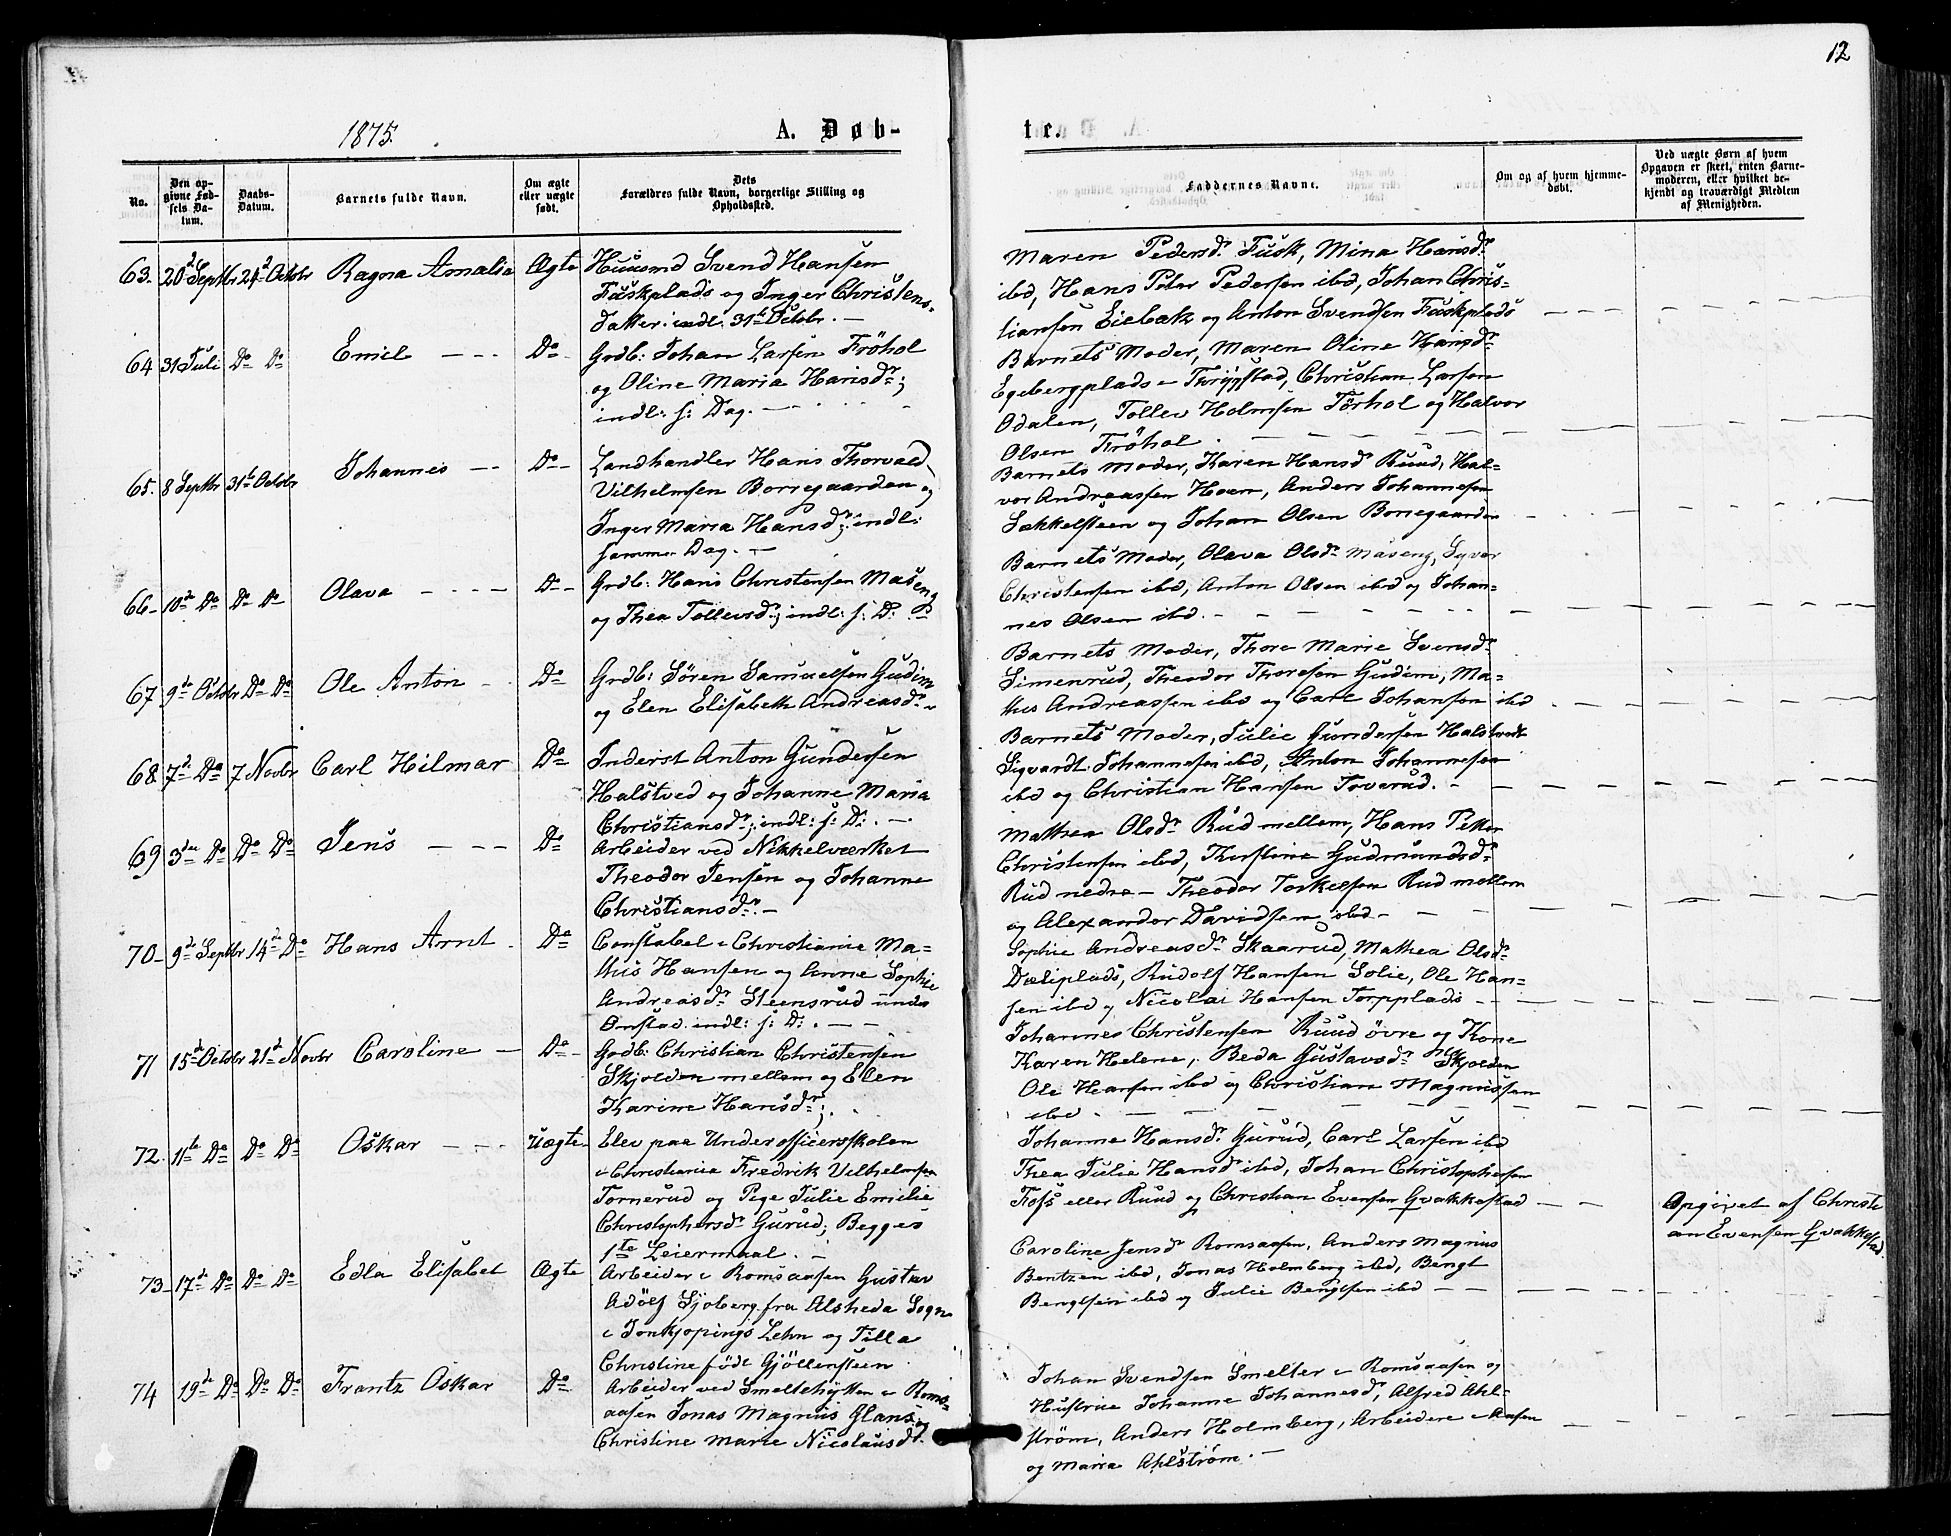 12
1875.
A. Døb-
te.
No.
Den op-
givne Fød-
sels Da-
tum.
Daabs-
Datum.
Barnets fulde Navn.
Om ægte
eller uægte
født.
Dets
Forældres fulde Navn, borgerlige Stilling og
Opholdssted.
Faddernes Navne.
Om og af hvem hjemme-
døbt.
Ved uægte Børn af hvem
Opgaven er skeet, enten Barne-
moderen, eller hvilket be-
kjendt og troværdigt Medlem
af Menigheden.
63. 20d Septbr 24d Octobr Ragna Amalia Ægte Huusmd Svend Hansen
Fuskplads og Inger Christens-
datter: indl: 31te Octobr. —
Maren Pedersdr Fusk, Mina Hansdr
ibd, Hans Peter Pedersen ibd, Johan Chris-
tiansen Eiebak og Anton Svendsen Fuskplads
64 31 Juli Do Do Emil — - - Do Grdb: Johan Larsen Fröhol
og Oline Maria Hansdr;
indl: s: Dag. —
Barnets Moder, Maren Oline Hansdr
Egebergplads i Thrygstad, Christian Larsen
Odalen, Tollev Holmsen Törhol og Halvor
Olsen Fröhol
65. 8 Septbr 31te Octobr Johannes — - Do - Landhandler Hans Thorvald
Vilhelmsen Borregaarden og
Inger Maria Hansdr; indl:
samme Dag. —
Barnets Moder, Karen Hansdr Ruud, Hal-
vor Andreassen Hoen, Anders Johannesen
Sekkelsteen og Johan Olsen Borregaarden
66- 10de Do Do Do Olava - - - - Do - Grdb: Hans Christensen Maseng
og Thea Tollevsdr; indl: s: D:
Barnets Moder, Olava Olsdr Maseng, Syver
Christensen ibd, Anton Olsen ibd og Johan-
nes Olsen ibd. -
67 9de Octobr Do Do Ole Anton - Do Grdb: Sören Samuelsen Gudim
og Elen Elisabeth Andreasdr
Barnets Moder, Thore Marie Svensdr
Simenrud, Theodor Thoresen Gudim, Ma-
this Andreassen ibd og Carl Johansen ibd
68 7de Do 7 Novbr Carl Hilmar Do Inderst Anton Gundersen
Halstved og Johanne Maria
Christiansdr; indl: s: D: . —
Barnets Moder, Julie Gundersen Halstvedt
Sigvardt Johannesen ibd, Anton Johannesen
ibd og Christian Hansen Toverud. -
69 3die Do Do Do Jens — - - Do Arbeider ved Nikkelværket
Theodor Jensen og Johanne
Christiansdr. —
Mathea Olsdr Rud mellem, Hans Petter
Christensen ibd, Thestine Gudmundsdr
Rud nedre — Theodor Torkelsen Rud mellem
og Alexander Davidsen ibd -
70- 9de Septbr 14de Do Hans Arnt - Do Constabel i Christiania Ma-
this Hansen og Anne Sophie
Andreasdr Steensrud under
Onstad indl: s: D: . — -
Sophie Andreasdr Skaarud, Mathea Olsdr
Dæliplads, Rudolf Hansen Solie, Ole Han-
sen ibd og Nicolai Hansen Torpplads - -
71 15d Octobr 21d Novbr Caroline — Do - Grdb: Christian Christensen
Skjolden mellem og Elen
Karine Hansdr; .
Johannes Christensen Ruud övre og Kone
Karen Helene, Beda Gustavsdr Skjolden
Ole Hansen ibd og Christian Magnussen
ibd .
72. 11te Do Do Do Oskar - - - Uægte Elev paa Underofficersskolen
i Christiania Fredrik Vilhelmsen
Tornerud og Pige Julie Emilie
Christophersdr Gurud; Begges
1te Leiermaal. -
Johanne Hansdr Gurud, Carl Larsen ibd
Thea Julie Hansdr ibd, Johan Christophersen
Foss eller Ruud og Christian Evensen Gvakkestad
Opgivet af Christi
an Evensen Gvakkestad
73- 17de Do Do Do Edla Elisabet Ægte Arbeider i Romsaasen Gustav
Adolf Sjoberg fra Alsheda Sogn
i Jonkjopings Lehn og Tilla
Christine födt Gjöllensteen
Caroline Jensdr Romsaasen, Anders Magnus
Bentzen ibd, Jonas Holmberg ibd, Bengt
Bengtsen ibd og Julie Bengtsen ibd - -
74 19de Do Do Do Frantz Oskar Do Arbeider ved Smeltehytten i Roms-
aasen Jonas Magnus Glans og
Christine Marie Nicolausdr.
Johan Svendsen Smelter i Romsaasen og
Hustrue Johanne Johannesdr, Alfred Ahl-
ström, Anders Holmberg, Arbeidere i Aasen
og Maria Ahlström. -